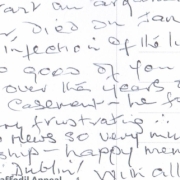 an arg
r died on Jan
infection of the lu
so good of you
over the years
Casement - he fo
ry frustrating
news so very mu
ship - happy mem
Dublin! With all